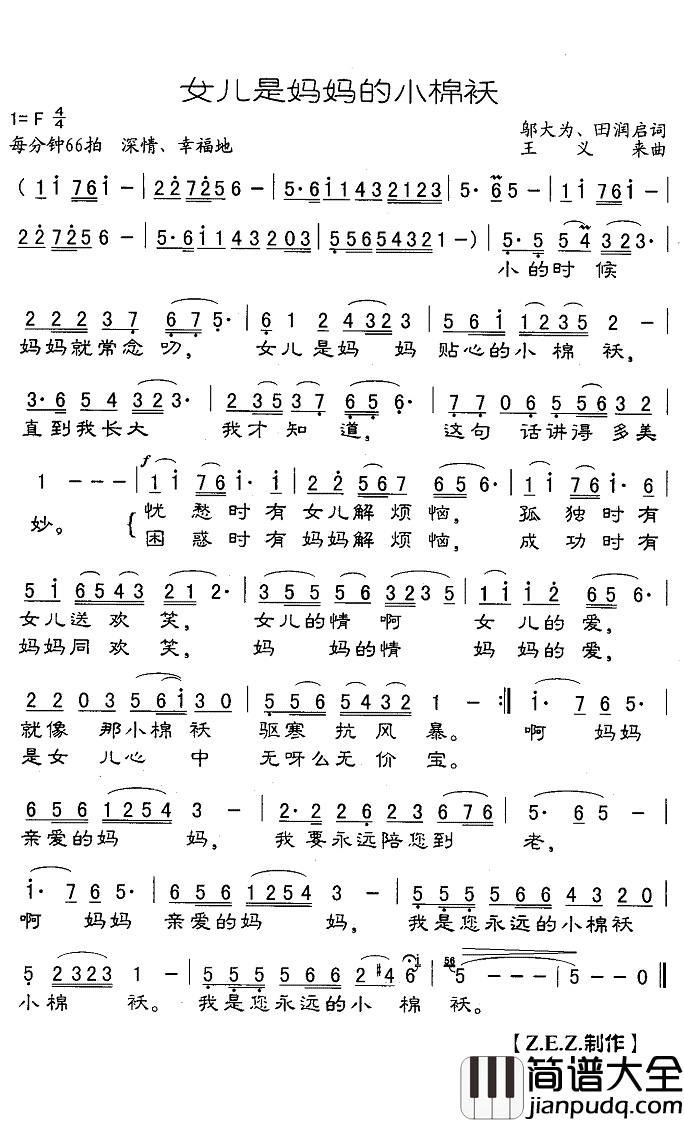 女儿是妈妈的小棉袄
1=F 4/4
每分钟66拍 深情、幸福地
邬大为、田润启词
王义来曲
(1i 76i - | 227256 - | 5·6i1143212 3 | 5·65 - | 1i 76i - |
227256 - | 5·6i11432 03 | 5565 4321 - ) | 5·5 54 323· |
小的时候
222 37 675· | 612 4323 | 56i 12352 - |
妈妈就常念叨, 女儿是妈妈 贴心的小棉袄,
3·654 323· | 235 37 656· | 77065 5632 |
直到我长大 我才知道, 这句话讲得多美
1 - - - | 1i 76i·i | 22567 656· | 1i 76i·6 |
妙。 忧愁时有女儿解烦恼, 孤独时有
困惑时有妈妈解烦恼, 成功时有
5i 6543 212· | 35556 3235 | 1ii2 656· |
女儿送欢笑, 女儿的情啊 女儿的爱,
妈妈同欢笑, 妈妈的情 妈妈的爱,
2203 56i30 | 556 5432 1 - :| i·7 65· |
就像那小棉袄 驱寒抗风暴。 啊 妈妈
是女儿心中 无呀么无价宝。
656 1254 3 - | 2·2262 3676 | 5·65 - |
亲爱的妈妈, 我要永远陪您到老,
i·7 65· | 656 1254 3 - | 5555566 4320 |
啊 妈妈 亲爱的妈妈, 我是您永远的小棉袄
5 2323 1 - | 5555566 2#46 | 5 - - - | 5 - - 0 ||
小棉袄。 我是您永远的小棉袄。
【Z.E.Z.制作】
简谱大全
jianpudq.com